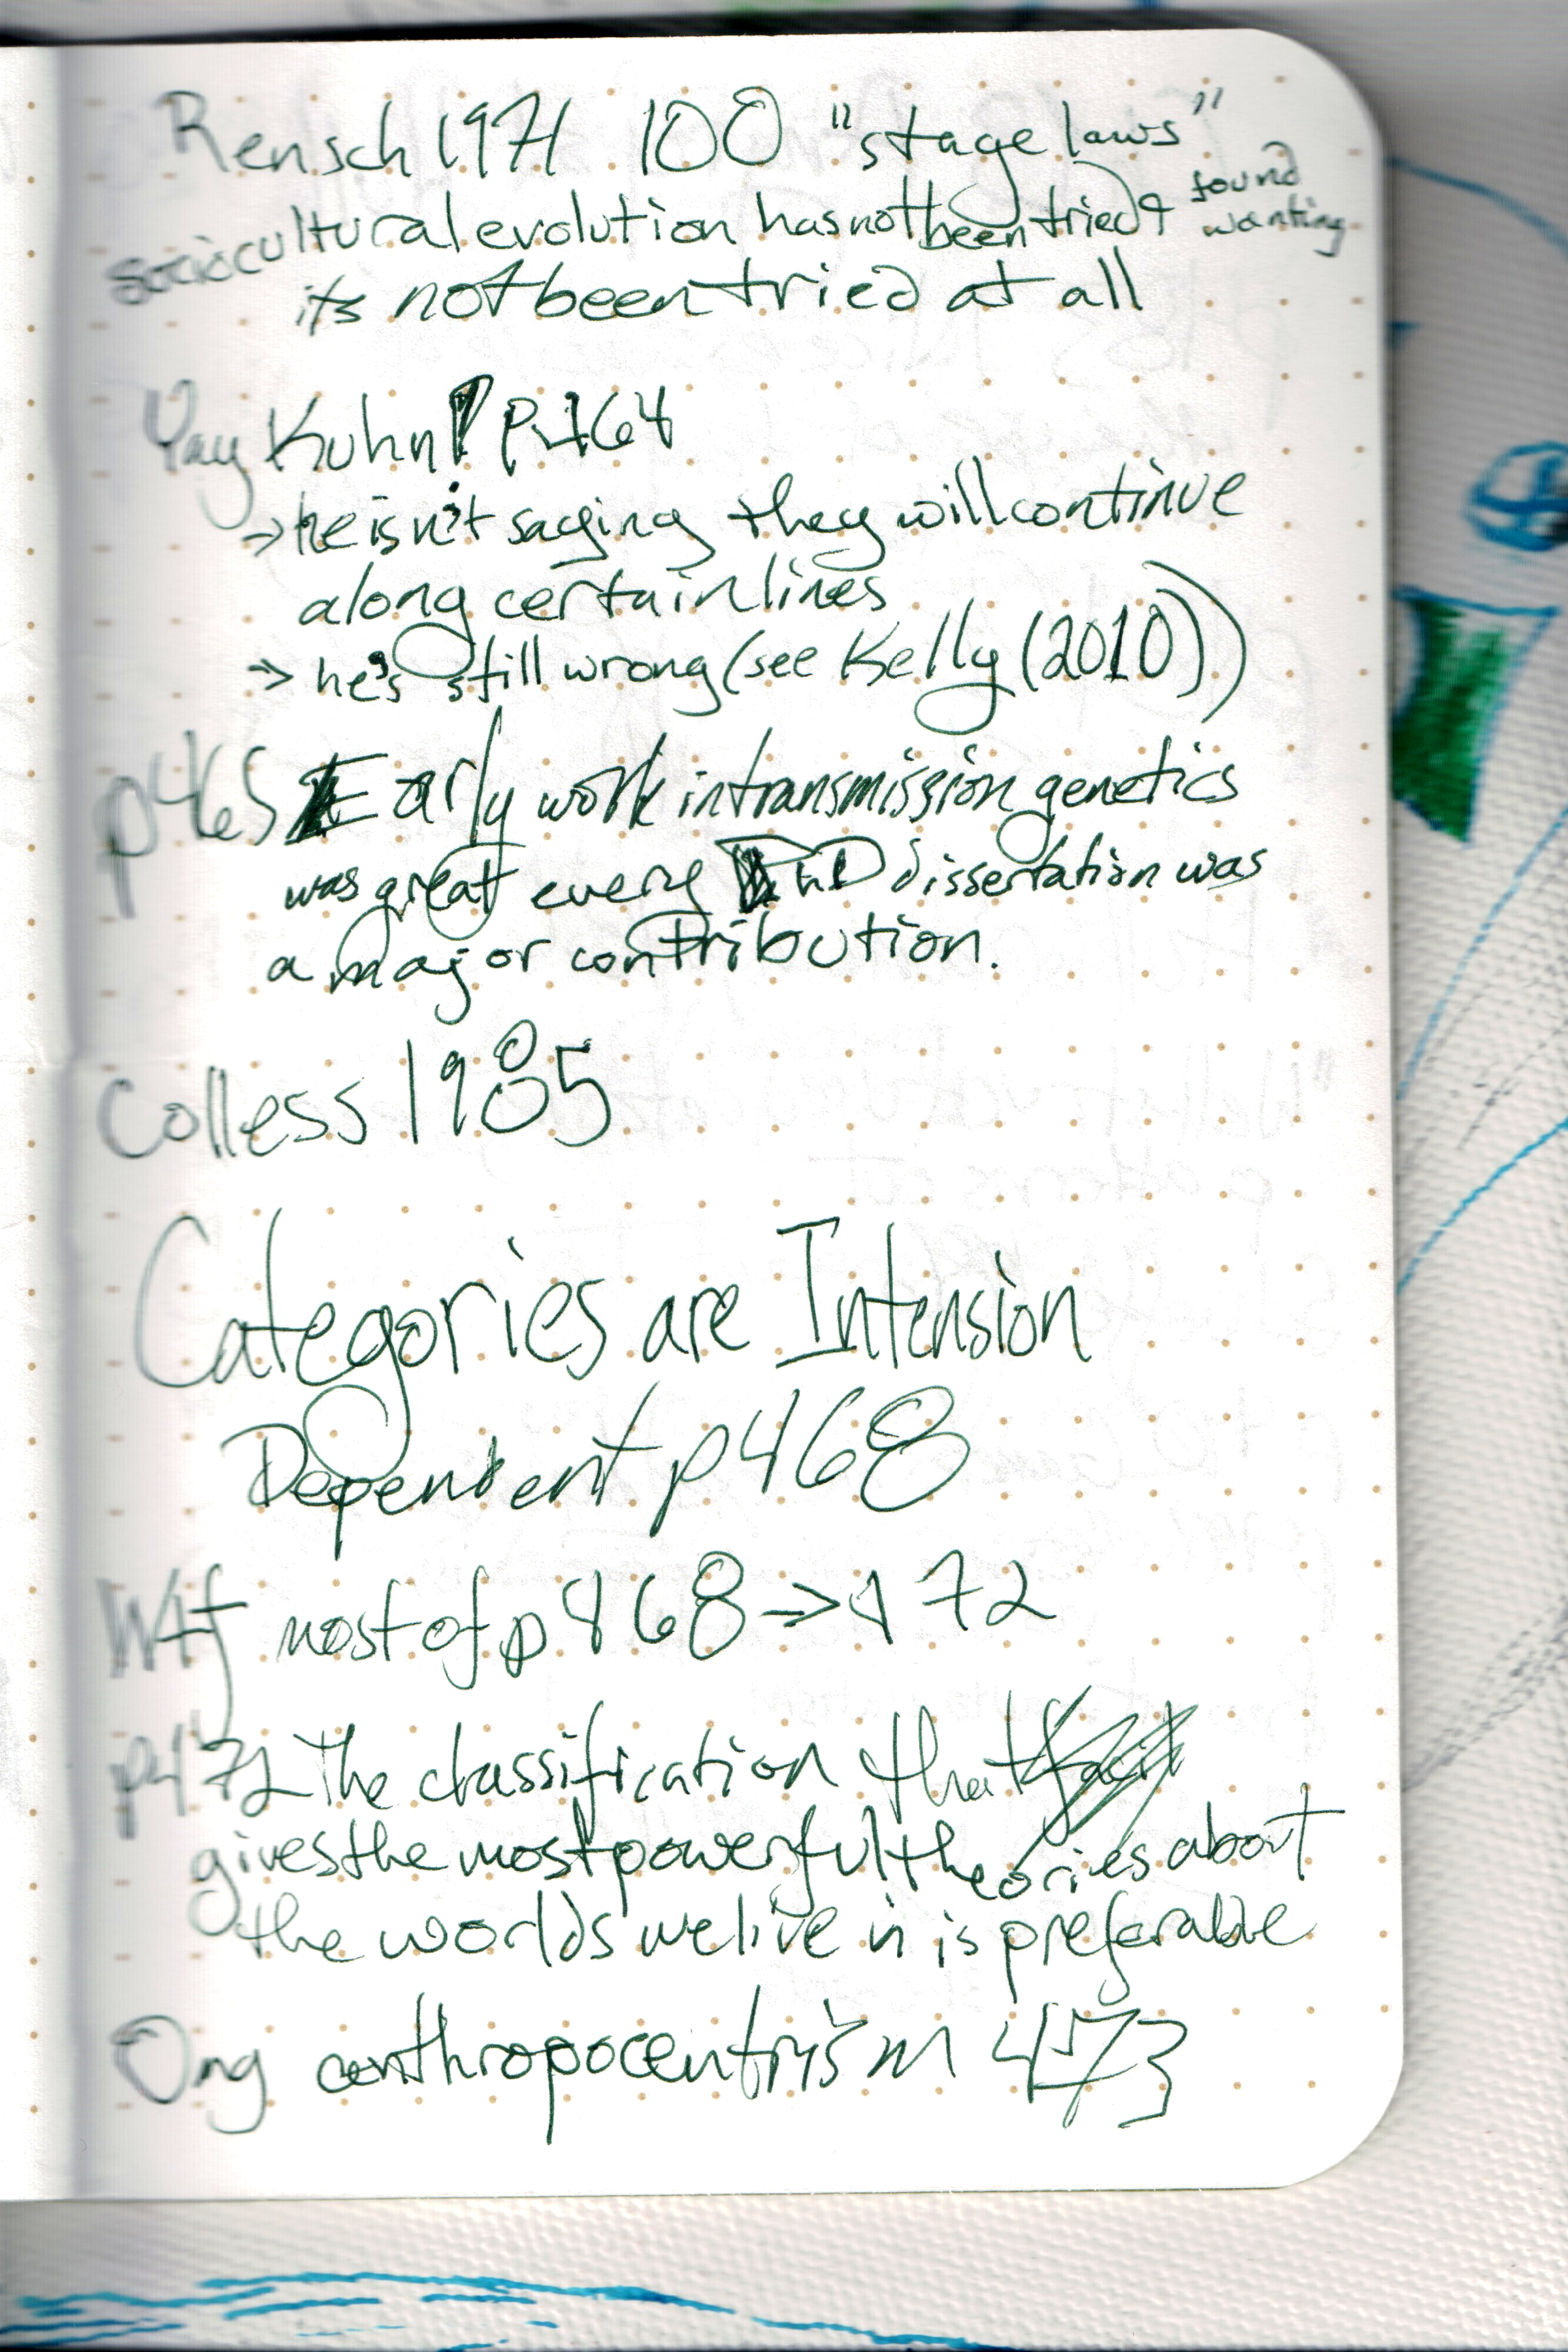 Rensch 1971 100 "stage laws"
sociocultural evolution has not been tried & found wanting
its not been tried at all
Yay Kuhn! p.464
→ he isn't saying they will continue
along certain lines
→ he's still wrong (see Kelly (2010))
p465 Early work in transmission genetics
was great every PhD dissertation was
a major contribution.
Colless 1985
Categories are Intension
Dependent p468
Wtf most of p468→472
p472 The classification that
gives the most powerful theories about
the worlds we live in is preferable
Omg anthropocentrism 473